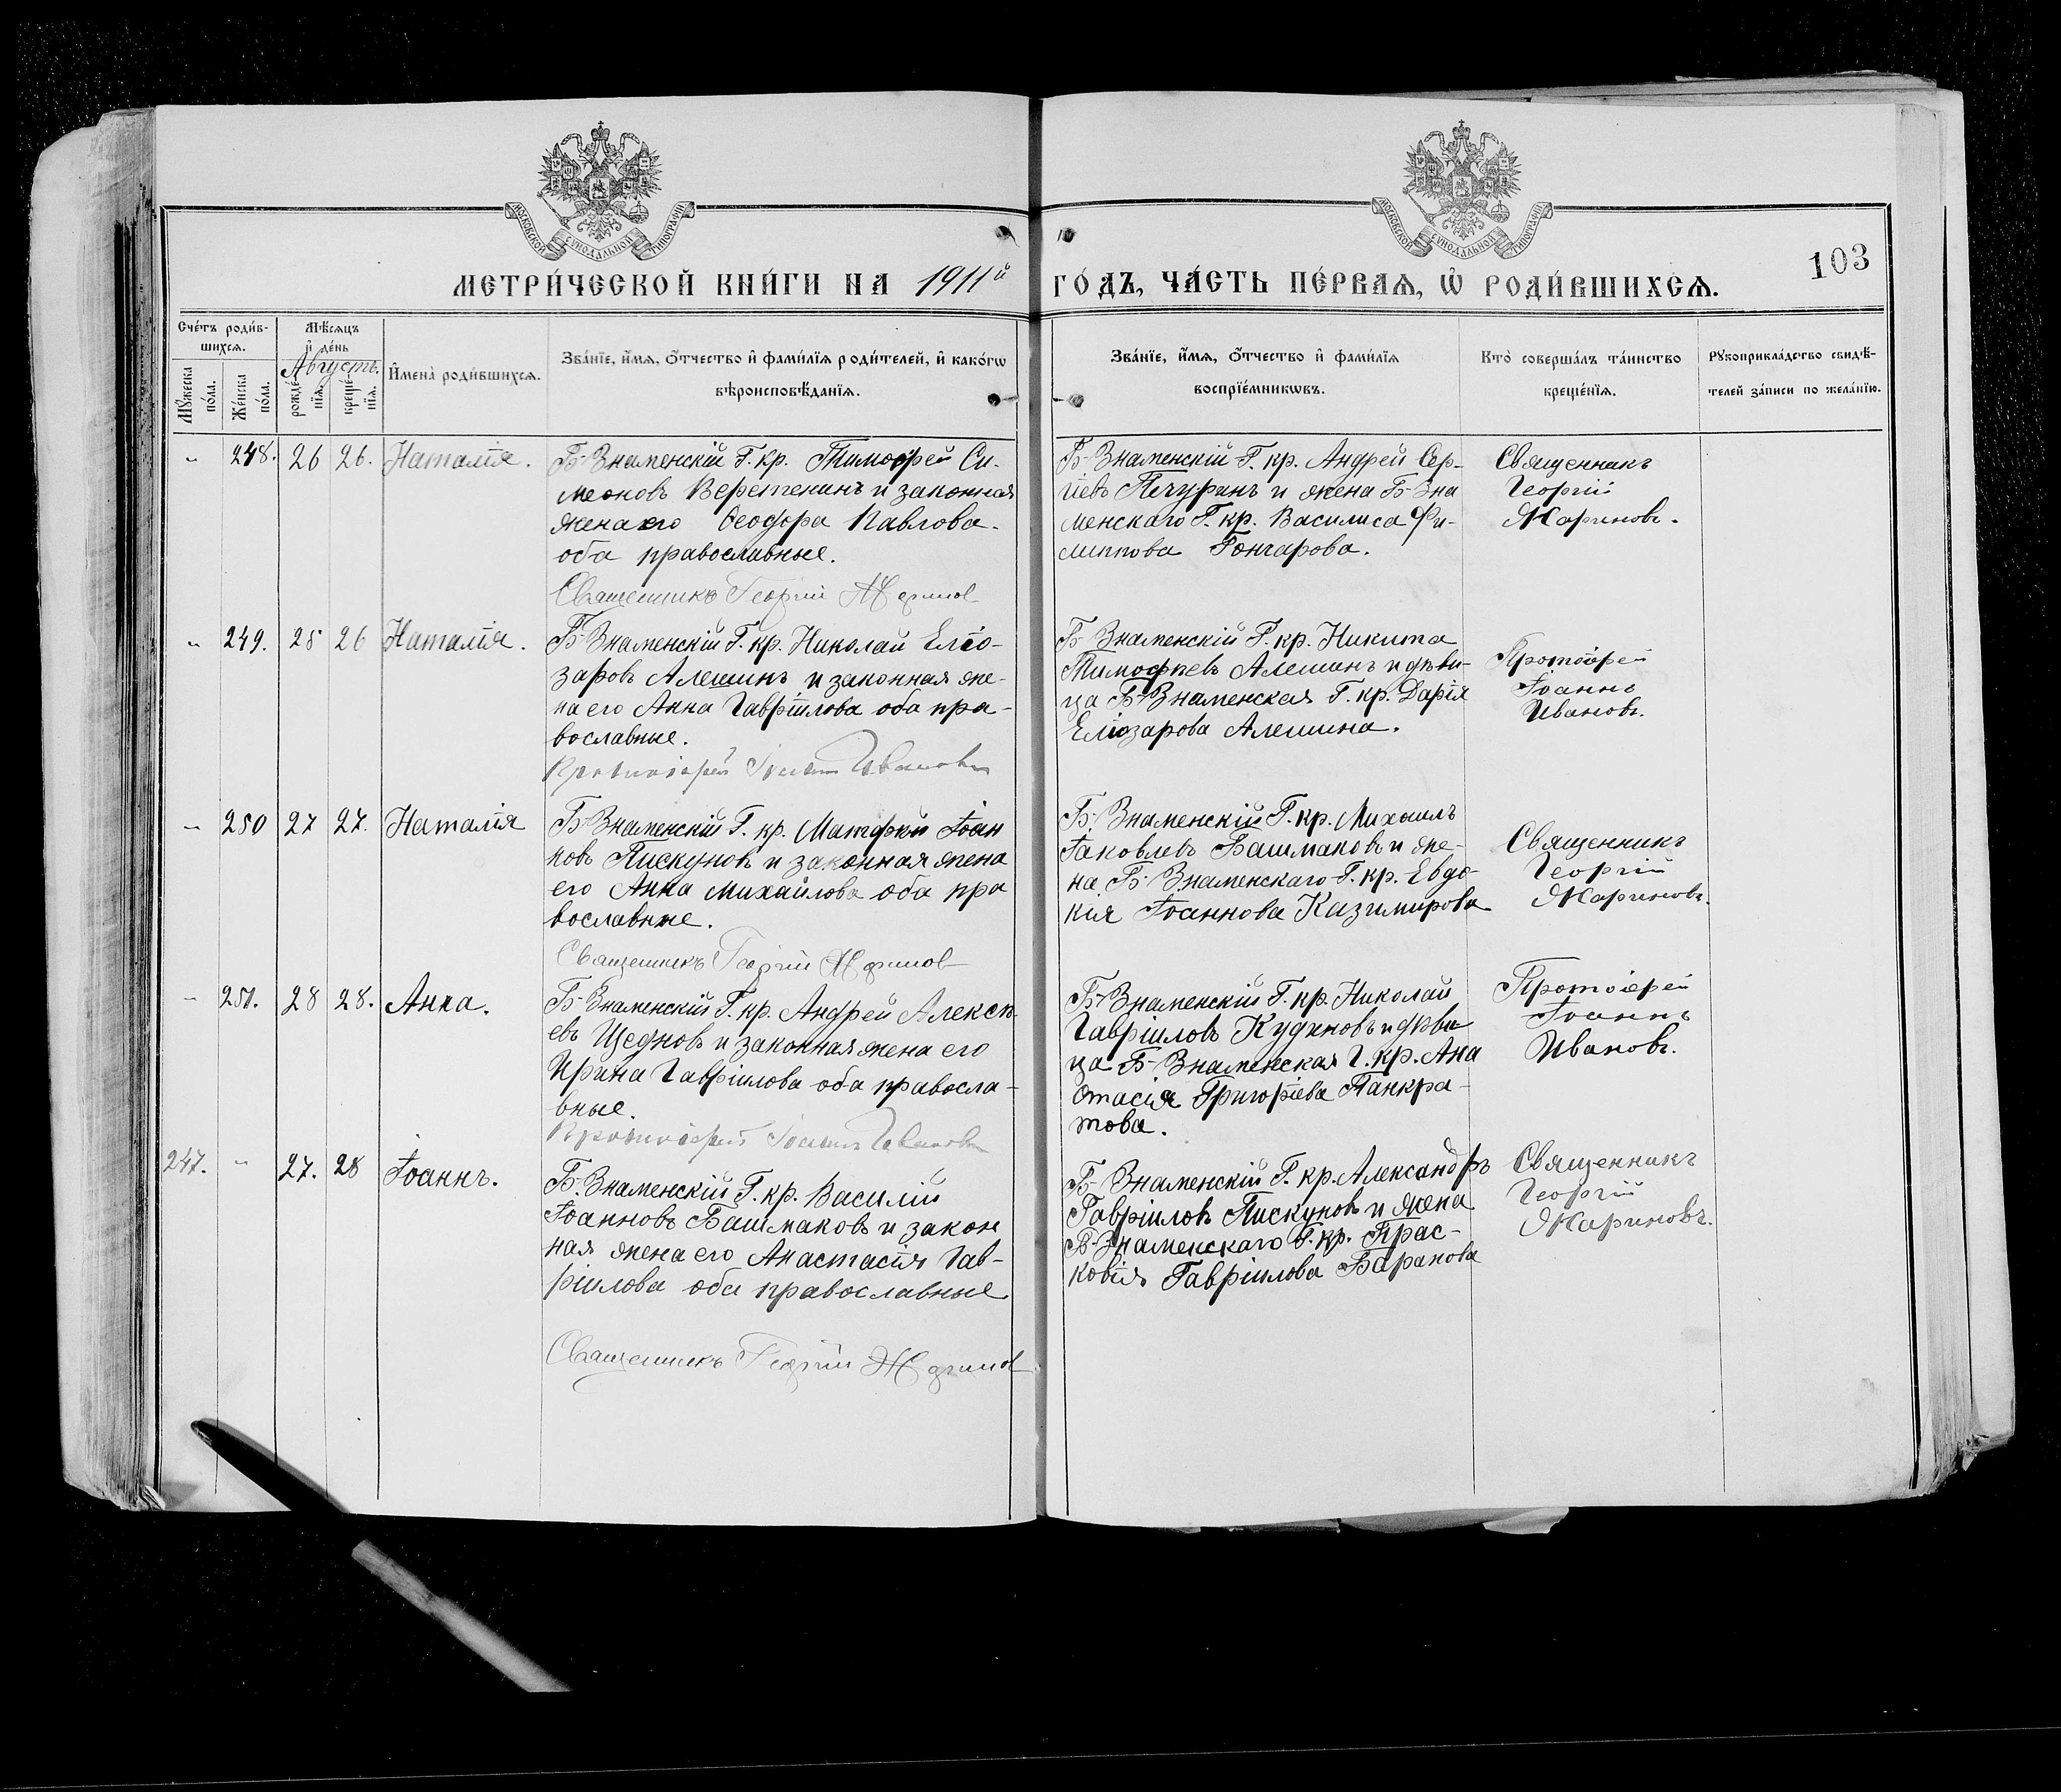 МОСКОВСКОЙ СУНОДАЛЬНОЙ ТИПОГРАФІИ
МОСКОВСКОЙ СУНОДАЛЬНОЙ ТИПОГРАФІИ
МЕТРИ́ЧЕСКОЙ КНИ́ГИ НА 1911й ГО́ДЪ, ЧА́СТЬ ПЕ́РВАѦ, Ѡ҆ РОДИ́ВШИХСѦ.
103
Сче́тъ роди́в-
шихсѧ.
Мꙋ́жеска
по́ла.
Же́нска
по́ла.
Мѣ́сѧцъ
и҆ де́нь
Августъ.
рожде́-
нїѧ.
креще́-
нїѧ.
И҆мена̀ роди́вшихсѧ.
Зва́нїе, и҆́мѧ, ѻ҆́тчество и҆ фами́лїѧ роди́телей, и҆ како́гѡ
вѣроисповѣ́данїѧ.
Зва́нїе, и҆́мѧ, ѻ҆́тчество и҆ фами́лїѧ
воспрїе́мникѡвъ.
Кто̀ соверша́лъ та́инство
креще́нїѧ.
Рꙋкоприкла́дство свидѣ́-
телей за́писи по жела́нїю.
„ 248. 26 26. Наталія.
Б-Знаменскій Г. кр. Тимоѳей Си-
меоновъ Веретенинъ и законная
жена его Ѳеодора Павлова.
оба православные.
Священникъ Георгій Жариновъ
Б-Знаменскій Г. кр. Андрей Сер-
гіевъ Печуринъ и жена Б-Зна
менскаго Г. кр. Василиса Фи-
липпова Гончарова.
Священникъ
Георгій
Жариновъ.
„ 249. 25 26 Наталія.
Б-Знаменскій Г. кр. Николай Еліо-
заровъ Алешинъ и законная же-
на его Анна Гавріилова оба пра-
вославные.
Протоіерей Іоаннъ Ивановъ
Б-Знаменскій Г. кр. Никита
Тимоѳеевъ Алешинъ и дѣви-
ца Б-Знаменская Г. кр. Дарія
Еліозарова Алешина.
Протоіерей
Іоаннъ
Ивановъ.
„ 250 27 27. Наталія
Б-Знаменскій Г. кр. Матѳей Іоан
новъ Пискуновъ и законная жена
его Анна Михайлова оба пра
вославные.
Священникъ Георгій Жариновъ
Б-Знаменскій Г. кр. Михаилъ
Іаковлевъ Башмаковъ и же-
на Б-Знаменскаго Г. кр. Евдо-
кія Іоаннова Казимирова
Священникъ
Георгій
Жариновъ.
„ 251. 28 28. Анна.
Б-Знаменскій Г. кр. Андрей Алексѣ-
евъ и законная жена его
Ирина Гавріилова оба правосла-
вные.
Протоіерей Іоаннъ Ивановъ
Б-Знаменскій Г. кр. Николай
Гавріиловъ Кудиновъ и дѣви
ца Б-Знаменская Г. кр. Ана
стасія Григоріева Панкра-
това.
Протоіерей
Іоаннъ
Ивановъ.
247. „ 27. 28 Іоаннъ.
Б-Знаменскій Г. кр. Василій
Іоанновъ Башмаковъ и закон
ная жена его Анастасія Гав-
ріилова оба православные
Священникъ Георгій Жариновъ
Б-Знаменскій Г. кр. Александръ
Гавріиловъ Пискуновъ и жена
Б-Знаменскаго Г. кр. Прас-
ковія Гавріилова Баранова
Священникъ
Георгій
Жариновъ.